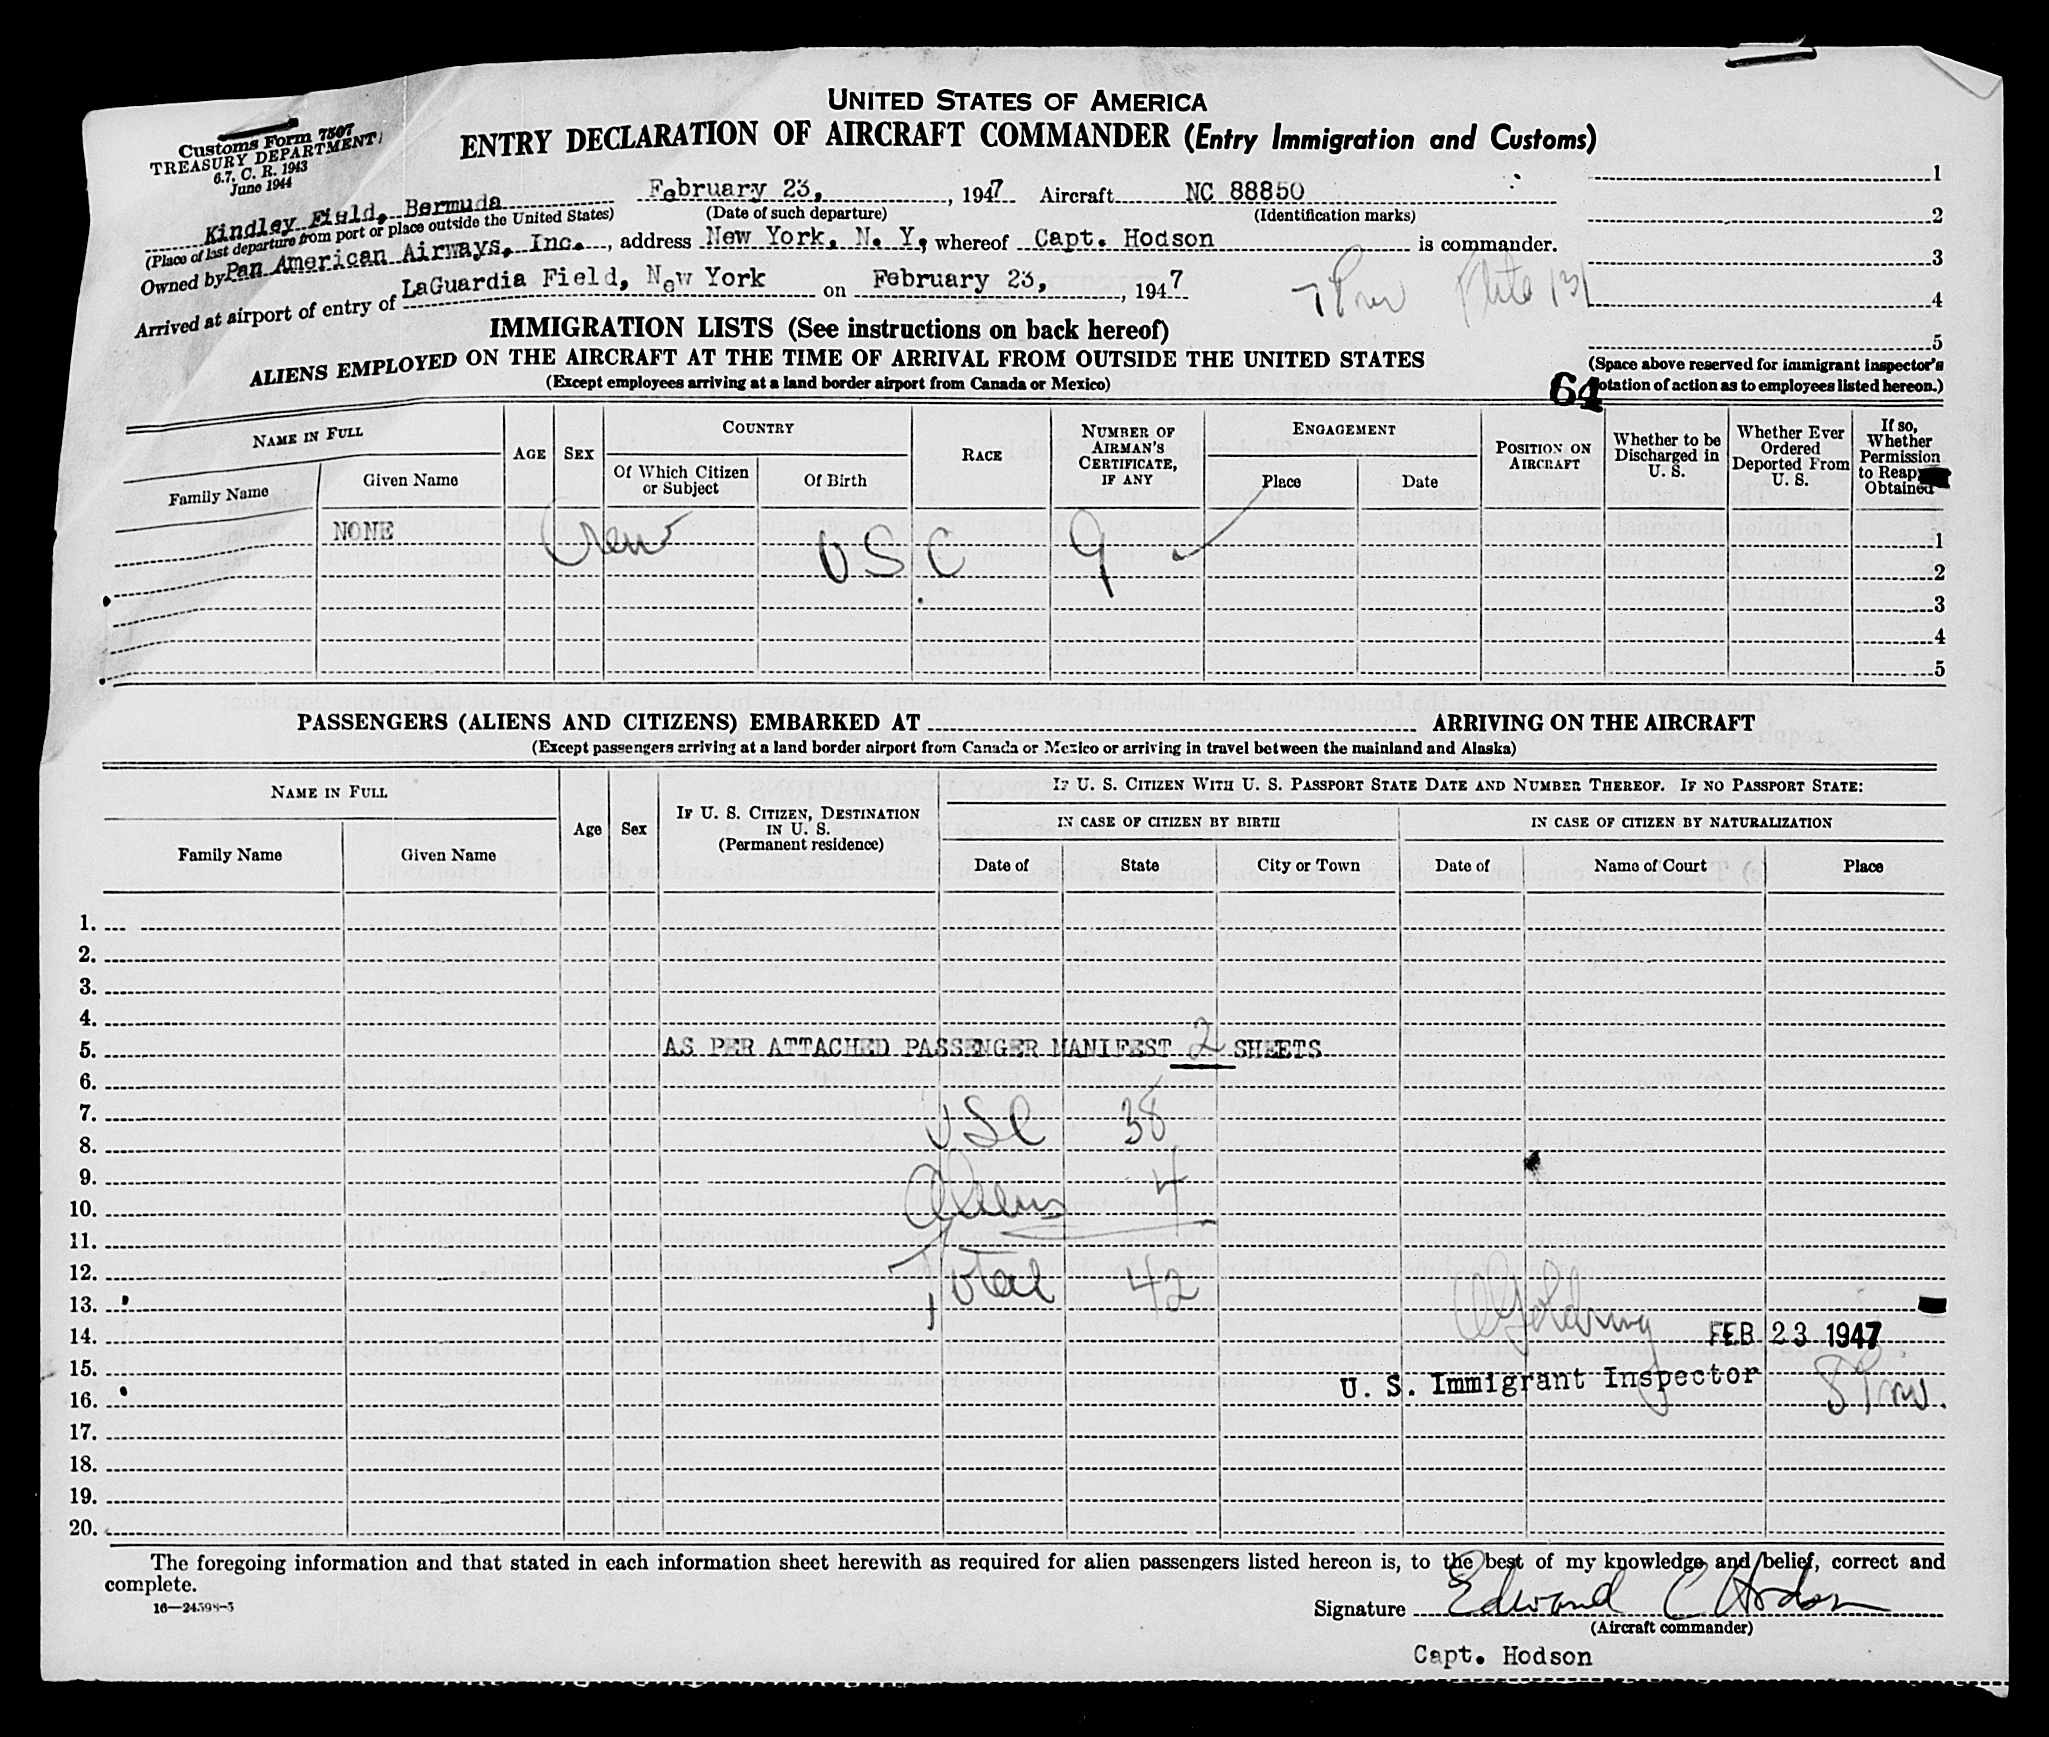 UNITED STATES OF AMERICA
ENTRY DECLARATION OF AIRCRAFT COMMANDER (Entry Immigration and Customs)
Customs Form 7507
TREASURY DEPARTMENT
6.7, C. R. 1943
June 1944
Kindley Field, Bermuda February 23, , 1947 Aircraft NC 88850
(Place of last departure from port or place outside the United States) (Date of such departure) (Identification marks)
Owned by Pan American Airways, Inc. , address New York, N. Y. , whereof Capt. Hodson is commander.
Arrived at airport of entry of LaGuardia Field, New York on February 23, , 1947
Flite 131
1
2
3
4
5
(Space above reserved for immigrant inspector's
notation of action as to employees listed hereon.)
64
IMMIGRATION LISTS (See instructions on back hereof)
ALIENS EMPLOYED ON THE AIRCRAFT AT THE TIME OF ARRIVAL FROM OUTSIDE THE UNITED STATES
(Except employees arriving at a land border airport from Canada or Mexico)
NAME IN FULL
Family Name
Given Name
AGE
SEX
COUNTRY
Of Which Citizen or Subject
Of Birth
RACE
NUMBER OF AIRMAN'S CERTIFICATE, IF ANY
ENGAGEMENT
Place
Date
POSITION ON AIRCRAFT
Whether to be Discharged in U. S.
Whether Ever Ordered Deported From U. S.
If so, Whether Permission to Reap Obtained
NONE Crew USC 9 1
2
3
4
5
PASSENGERS (ALIENS AND CITIZENS) EMBARKED AT ARRIVING ON THE AIRCRAFT
(Except passengers arriving at a land border airport from Canada or Mexico or arriving in travel between the mainland and Alaska)
NAME IN FULL
Family Name
Given Name
Age
Sex
IF U. S. CITIZEN, DESTINATION IN U. S.
(Permanent residence)
IF U. S. CITIZEN WITH U. S. PASSPORT STATE DATE AND NUMBER THEREOF. IF NO PASSPORT STATE:
IN CASE OF CITIZEN BY BIRTH
IN CASE OF CITIZEN BY NATURALIZATION
Date of
State
City or Town
Date of
Name of Court
Place
1.
2.
3.
4.
5. AS PER ATTACHED PASSENGER MANIFEST 2 SHEETS
6.
7. USC 38
8.
9. Aliens 4
10.
11.
12. Total 42
13.
14. FEB 23 1947
15. U. S. Immigrant Inspector
16.
17.
18.
19.
20.
The foregoing information and that stated in each information sheet herewith as required for alien passengers listed hereon is, to the best of my knowledge and belief, correct and
complete.
16—24598-3
Signature Edward C Hodson
(Aircraft commander)
Capt. Hodson